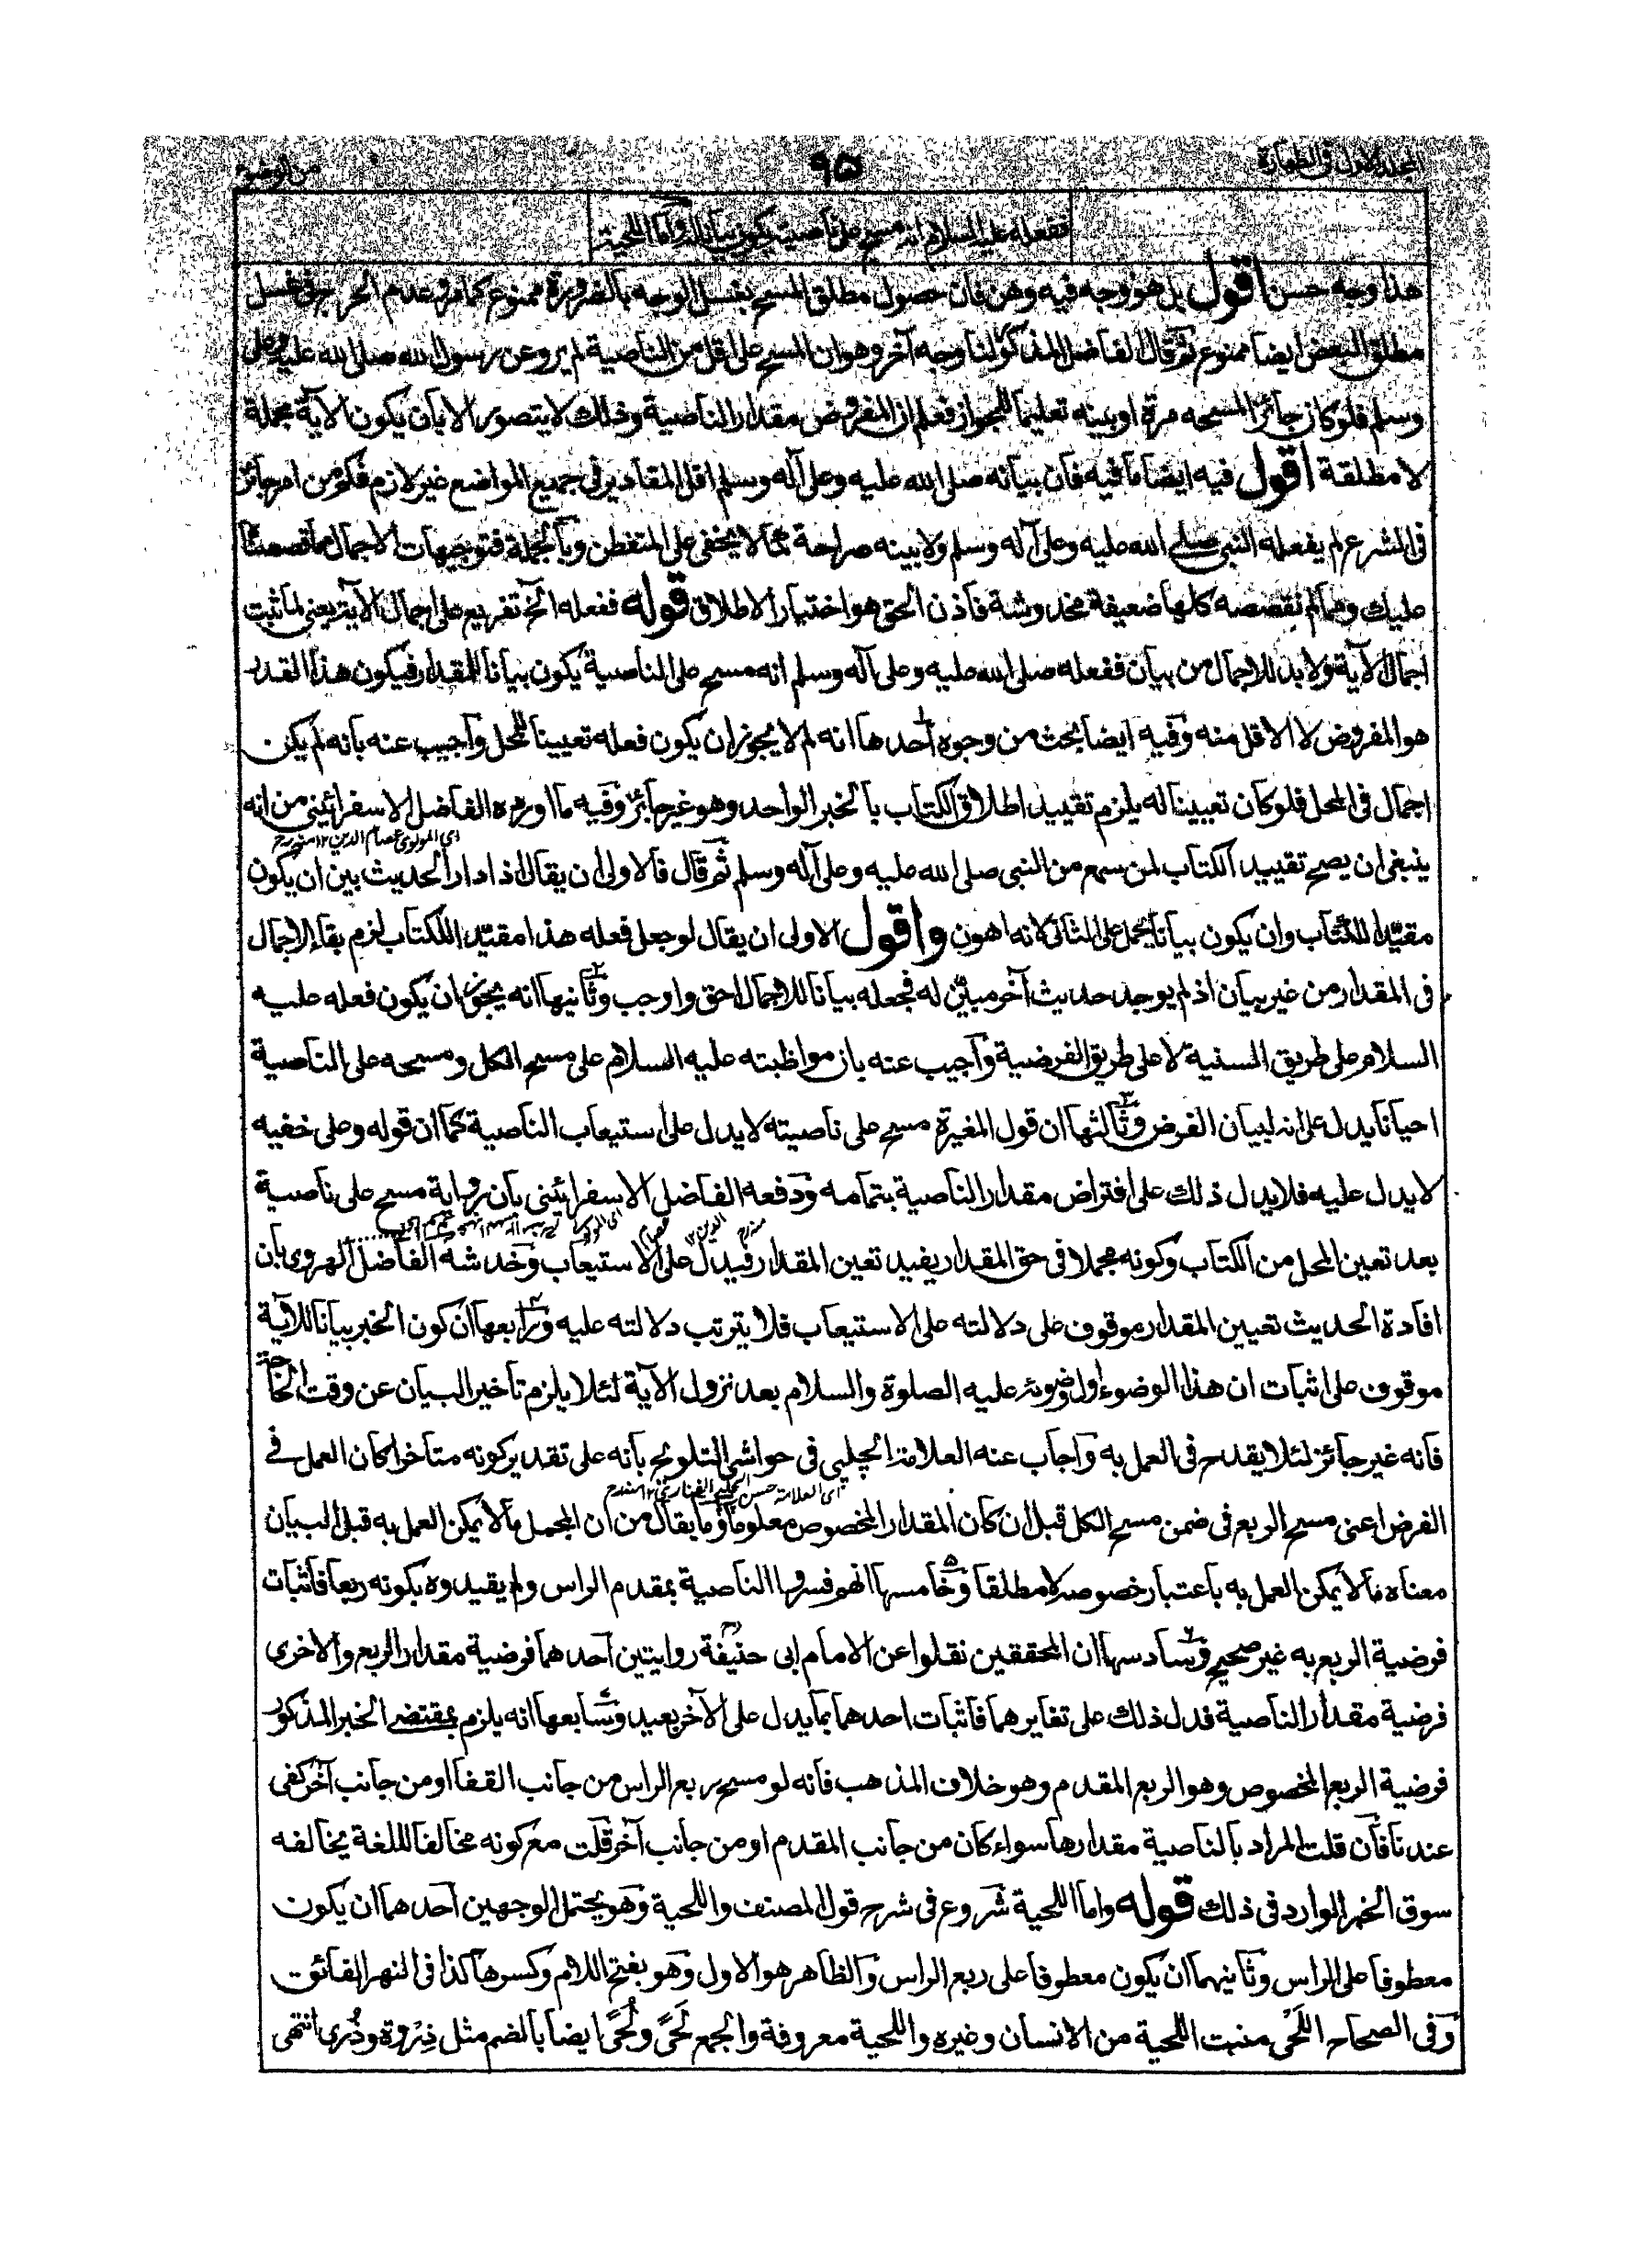 المجلد الاول فی الطهارة
٩٥
من الوضوء
ففعله علیه السلام انه مسح علی ناصیته یکون بیانا له واما اللحیة
هذا وجه حسن اقول بل هو وجه فیه وهن فان حصول مطلق المسح بغسل الوجه بالضرورة ممنوع کما مر وعدم الحرج فی غسل
مطلق البعض ایضا ممنوع ثم قال الفاضل المذکور لنا وجه آخر وهو ان المسح علی اقل من الناصیة لم یرو عن رسول الله صلی الله علیه وعلی
وسلم فلو کان جائزا لمسحه مرة او بینه تعلیما للجواز فعلم ان المفروض مقدار الناصیة وذلك لا یتصور الا بان یکون الآیة مجملة
لا مطلقة اقول فیه ایضا ما فیه فان بیانه صلی الله علیه وعلی آله وسلم اقل المقادیر فی جمیع المواضع غیر لازم فکم من امر جائز
فی الشرع لم یفعله النبی صلی الله علیه وعلی آله وسلم ولا بینه صراحة کما لا یخفی علی المتفطن وبالجملة فتوجیهات الاجمال مما قصصنا
علیك ومما لم نقصصه کلها ضعیفة مخدوشة فاذن الحق هو اختیار الاطلاق قوله ففعله الخ تفریع علی اجمال الآیة یعنی لما ثبت
اجمال الآیة ولا بد للاجمال من بیان ففعله صلی الله علیه وعلی آله وسلم انه مسح علی الناصیة یکون بیانا للمقدار فیکون هذا القدر
هو المفروض لا الاقل منه وفیه ایضا بحث من وجوه احدها انه لم لا یجوز ان یکون فعله تعیینا للمحل واجیب عنه بانه لم یکن
اجمال فی المحل فلو کان تعیینا له یلزم تقیید اطلاق الکتاب بالخبر الواحد وهو غیر جائز وفیه ما اورده الفاضل الاسفرائینی من انه
ای المولوی عصام الدین ۱۲ منه رح
ینبغی ان یصح تقیید الکتاب لمن سمع من النبی صلی الله علیه وعلی آله وسلم ثم قال فالاولی ان یقال اذا دار الحدیث بین ان یکون
مقیدا للکتاب وان یکون بیانا یحمل علی الثانی لانه اهون واقول الاولی ان یقال لو جعل فعله هذا مقیدا للکتاب لزم بقاء الاجمال
فی المقدار من غیر بیان اذ لم یوجد حدیث آخر مبین له فجعله بیانا للاجمال احق واوجب وثانیها انه یجوز ان یکون فعله علیه
السلام علی طریق السنیة لا علی طریق الفرضیة واجیب عنه بان مواظبته علیه السلام علی مسح الکل ومسحه علی الناصیة
احیانا یدل علی انه لبیان الفرض وثالثها ان قول المغیرة مسح علی ناصیته لا یدل علی استیعاب الناصیة کما ان قوله وعلی خفیه
لا یدل علیه فلا یدل ذلك علی افتراض مقدار الناصیة بتمامه ودفعه الفاضل الاسفرائینی بان روایة مسح علی ناصیة
بعد تعین المحل من الکتاب وکونه مجملا فی حق المقدار یفید تعین المقدار فیدل علی الاستیعاب وخدشه الفاضل الهروی بان
افادة الحدیث تعیین المقدار موقوف علی دلالته علی الاستیعاب فلا یترتب دلالته علیه ورابعها ان کون الخبر بیانا للآیة
موقوف علی اثبات ان هذا الوضوء اول وضوئه علیه الصلوة والسلام بعد نزول الآیة لئلا یلزم تأخیر البیان عن وقت الحاجة
فانه غیر جائز لئلا یقدح فی العمل به واجاب عنه العلامة الچلپی فی حواشی التلویح بانه علی تقدیر کونه متأخرا کان العمل فی
ای العلامة حسن الچلپی الفناری ۱۲ منه رح
الفرض اعنی مسح الربع فی ضمن مسح الکل قبل ان کان المقدار المخصوص معلوما وما یقال من ان المجمل ما لا یمکن العمل به قبل البیان
معناه ما لا یمکن العمل به باعتبار خصوصه لا مطلقا وخامسها انهم فسروا الناصیة بمقدم الراس ولم یقیدوه بکونه ربعا فاثبات
فرضیة الربع به غیر صحیح وسادسها ان المحققین نقلوا عن الامام ابی حنیفة روایتین احدهما فرضیة مقدار الربع والاخری
فرضیة مقدار الناصیة فدل ذلك علی تغایرهما فاثبات احدهما بما یدل علی الآخر بعید وسابعها انه یلزم بمقتضی الخبر المذکور
فرضیة الربع المخصوص وهو الربع المقدم وهو خلاف المذهب فانه لو مسح ربع الراس من جانب القفا او من جانب آخر کفی
عندنا فان قلت المراد بالناصیة مقدارها سواء کان من جانب المقدم او من جانب آخر قلت مع کونه مخالفا للغة یخالفه
سوق الخبر الوارد فی ذلك قوله واما اللحیة شروع فی شرح قول المصنف واللحیة وهو یحتمل الوجهین احدهما ان یکون
معطوفا علی الراس وثانیهما ان یکون معطوفا علی ربع الراس والظاهر هو الاول وهو بفتح اللام وکسرها کذا فی النهر الفائق
وفی الصحاح اللَحْی منبت اللحیة من الانسان وغیره واللحیة معروفة والجمع لَحیً ولُحیً ایضا بالضم مثل ذِروة وذُری انتهی